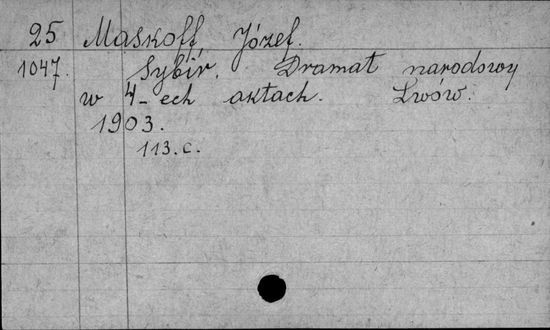 25 Maskoff, Józef.
1047. Sybir. Dramat narodowy
w 4-ech aktach. Lwów.
1903.
113.c.